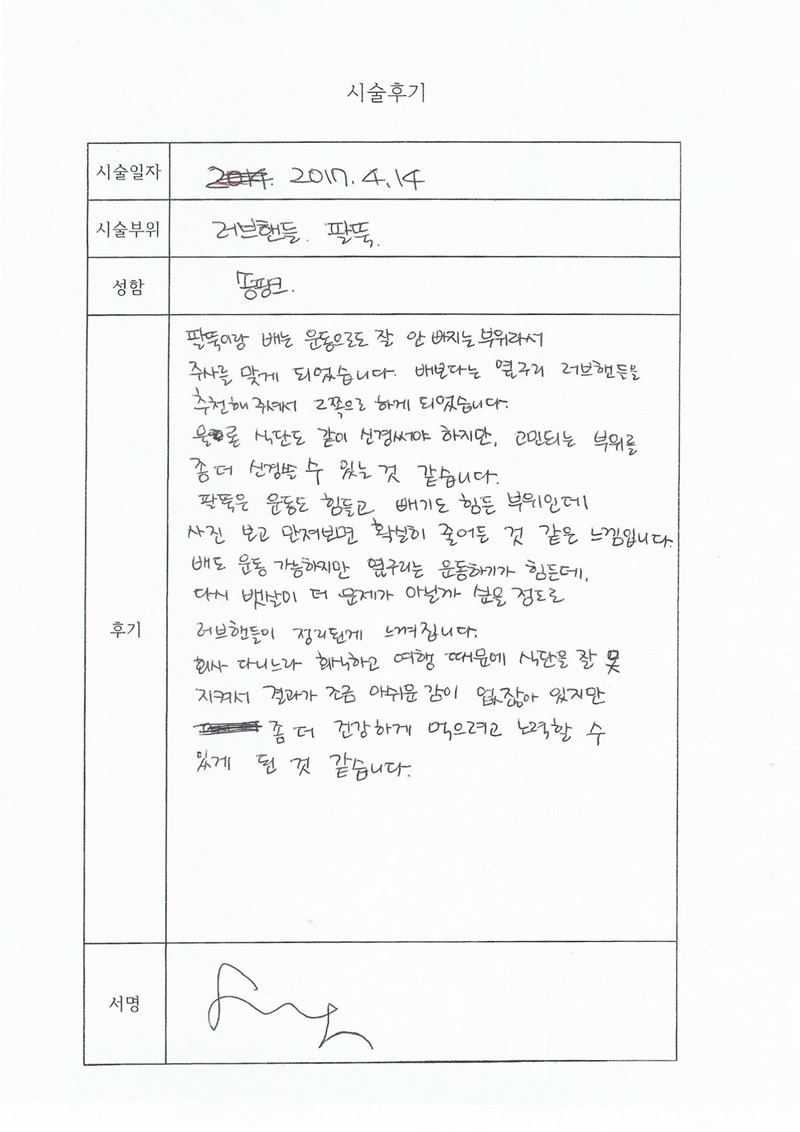 시술후기
시술일자 2017.4.14
시술부위 러브핸들. 팔뚝.
성함
팔뚝이랑 배는 운동으로도 잘 안 빠지는 부위라서
주사를 맞게 되었습니다. 배보다는 옆구리 러브핸들을
추천해 주셔서 그쪽으로 하게 되었습니다.
물론 식단도 같이 신경써야 하지만, 고민되는 부위를
좀 더 신경쓸 수 있는 것 같습니다.
팔뚝은 운동도 힘들고 빼기도 힘든 부위인데
사진 보고 만져보면 확실히 줄어든 것 같은 느낌입니다.
배도 운동 가능하지만 옆구리는 운동하기가 힘든데,
다시 뱃살이 더 문제가 아닐까 싶을 정도로
러브핸들이 정리된게 느껴집니다.
후기
회사 다니느라 회식하고 여행 때문에 식단을 잘 못
지켜서 결과가 조금 아쉬운 감이 없잖아 있지만
좀 더 건강하게 먹으려고 노력할 수
있게 된 것 같습니다.
서명